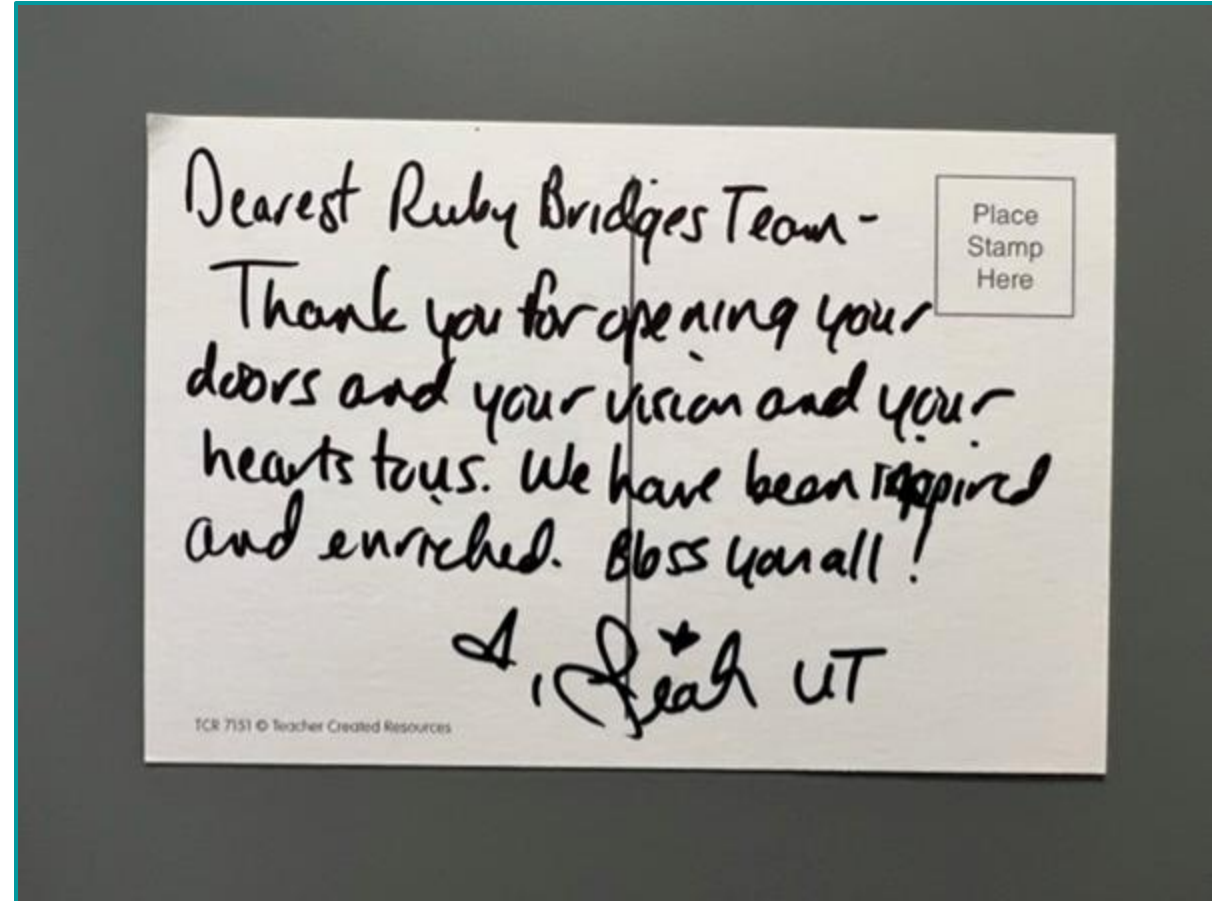 Dearest Ruby Bridges Team-
Place
Stamp
Here
Thank you for opening your
doors and your vision and your
hearts to us. We have been inspired
and enriched. Bless you all!
Leah UT
TCR 7151 © Teacher Created Resources